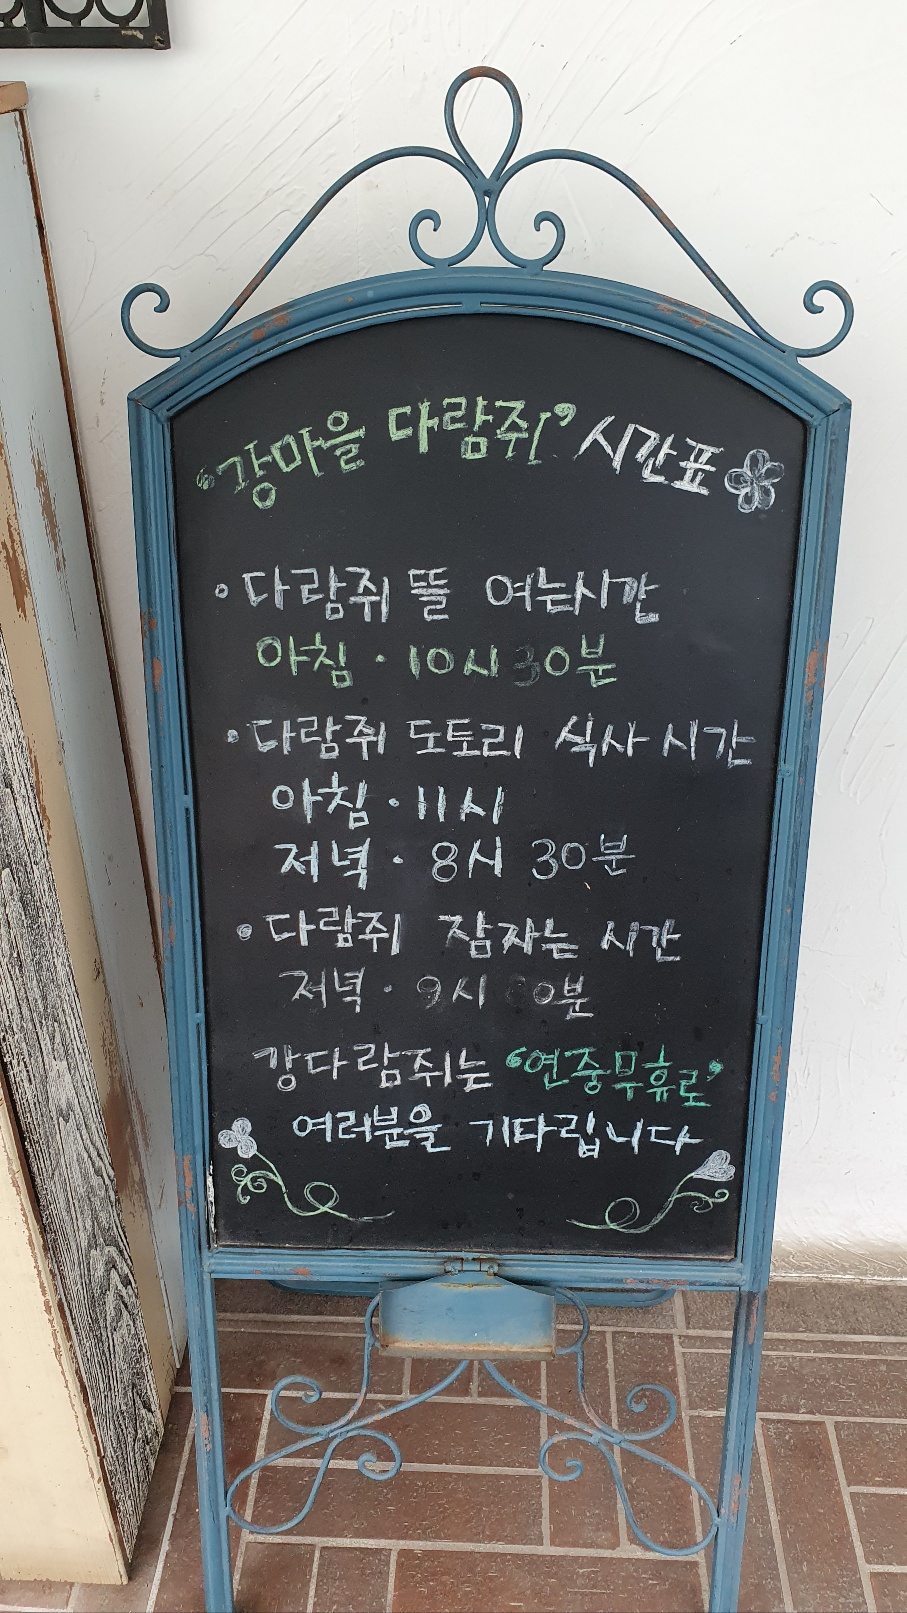 ‘강마을 다람쥐’ 시간표
• 다람쥐 뜰 여는시간
아침 · 10시 30분
• 다람쥐 도토리 식사 시간
아침 · 11시
저녁 · 8시 30분
• 다람쥐 잠자는 시간
저녁 · 9시 0분
강다람쥐는 ‘연중무휴로’
여러분을 기다립니다